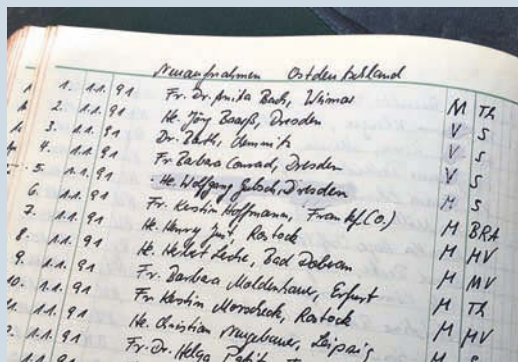 Neuaufnahmen Ostdeutschland
1. 1.1. 91 Fr. Dr. Anita Bach, Weimar M Th
2. 1.1. 91 He. Jörg Baarß, Dresden V S
3. 1.1. 91 Dr. Barth, Chemnitz V S
4. 1.1. 91 Fr. Barbara Conrad, Dresden V S
5. 1.1. 91 He. Wolfgang Dresden M S
6. 1.1. 91 Fr. Kerstin Hoffmann, Frankf. (O.) M BRA
7. 1.1. 91 He. Henry Rostock M MV
8. 1.1. 91 He. Bad Doberan M MV
9. 1.1. 91 Fr. Barbara Moldenhauer, Erfurt M Th
10. 1.1. 91 Fr. Kerstin Rostock M MV
1.1. 91 He. Christian Neugebauer, Leipzig M S
1.1. 91 Fr. Dr. Helga